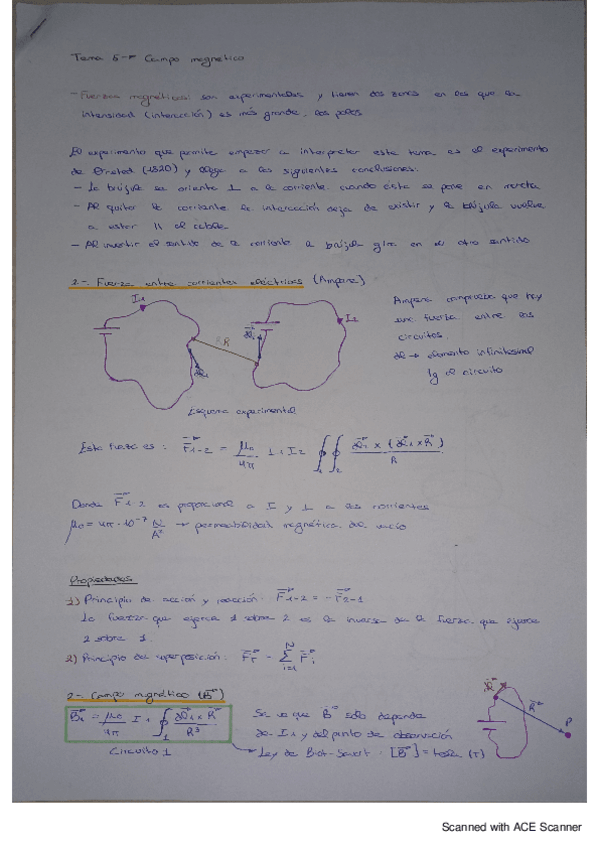 Tema 5 - Campo magnético
- Fuerzas magnéticas: son experimentales y tienen dos zonas en las que la
intensidad (interacción) es más grande, los polos
El experimento que permite empezar a interpretar este tema es el experimento
de Ørsted (1820) y llega a las siguientes conclusiones:
- La brújula se orienta ⊥ a la corriente cuando ésta se pone en marcha
- Al quitar la corriente la interacción deja de existir y la brújula vuelve
a estar // al cable
- Al invertir el sentido de la corriente la brújula gira en el otro sentido
2-. Fuerza entre corrientes eléctricas (Ampere)
I1
I2
R
Ampere comprueba que hay
una fuerza entre los
circuitos.
dl → elemento infinitesimal
lg el circuito
Esquema experimental
Esta fuerza es: F⃗1-2 = μ0/4π I1 I2 ∮1 ∮2 dl⃗2 x (dl⃗1 x R⃗) / R
Donde F⃗1-2 es proporcional a I y ⊥ a las corrientes
μ0 = 4π·10⁻⁷ N/A² → permeabilidad magnética del vacío
Propiedades
1) Principio de acción y reacción: F⃗1-2 = - F⃗2-1
La fuerza que ejerce 1 sobre 2 es la inversa de la fuerza que ejerce
2 sobre 1.
2) Principio de superposición: F⃗T = Σ F⃗i (i=1, N)
2-. Campo magnético (B⃗)
B⃗1 = μ0/4π I1 ∮1 dl⃗1 x R⃗ / R³
Circuito 1
Se ve que B⃗ solo depende
de I1 y del punto de observación
Ley de Biot-Savart: [B⃗] = tesla (T)
dl⃗
R⃗
P
Scanned with ACE Scanner